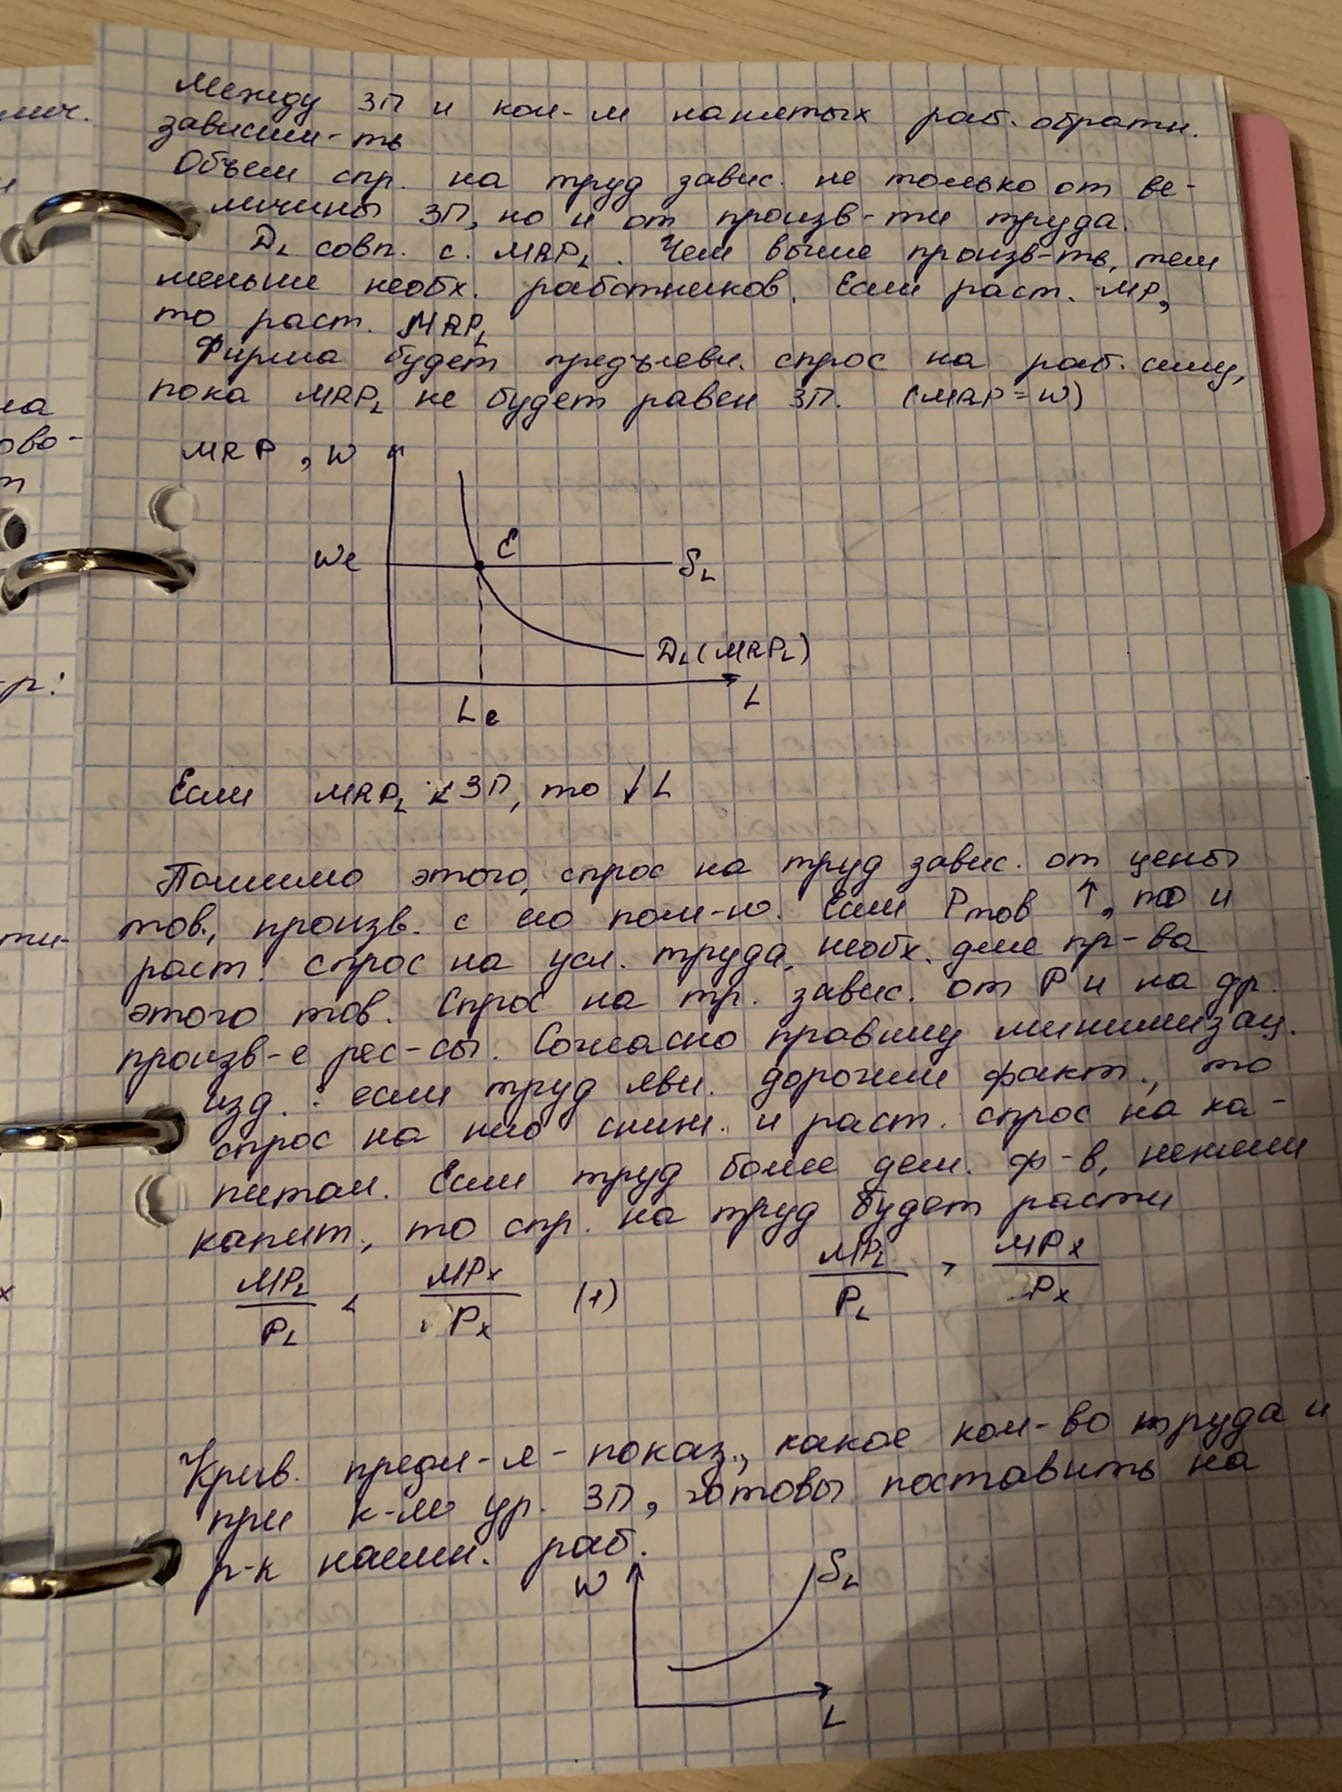 Между ЗП и кол-м нанятых раб. обратн.
зависим-ть
Объем спр. на труд завис. не только от ве-
личины ЗП, но и от произв-ти труда.
DL совп. с. MRPL. Чем выше произв-ть, тем
меньше необх. работников. Если раст. MP,
то раст. MRPL
Фирма будет предъявл. спрос на раб. силу,
пока MRPL не будет равен ЗП. (MRP = W)
MRP, W
We
E
SL
DL(MRPL)
Le
L
Если MRPL < ЗП, то ↓ L
Помимо этого, спрос на труд завис. от цены
тов., произв. с его пом-ю. Если Pтов ↑, то и
раст. спрос на усл. труда, необх. для пр-ва
этого тов. Спрос на тр. завис. от P и на др.
произв-е рес-сы. Согласно правилу минимизац.
изд.: если труд явл. дорогим факт., то
спрос на него сниж. и раст. спрос на ка-
питал. Если труд более деш. ф-в, нежели
капит., то спр. на труд будет расти
MPL/PL < MPx/Px (1) MPL/PL > MPx/Px
Крив. предл-я - показ., какое кол-во труда и
при к-м ур. ЗП, готовы поставить на
р-к наёмн. раб.
W
SL
L
мич.
ово-
р:
ти-